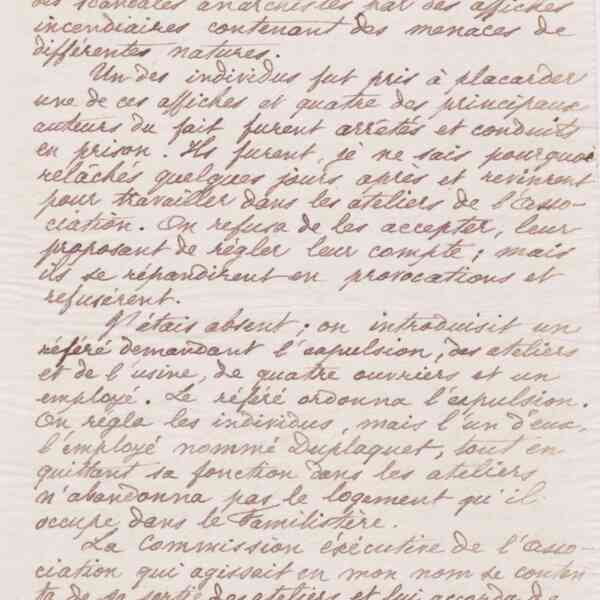 des scandales anarchistes par des affiches
incendiaires contenant des menaces de
différentes natures.
Un des individus fut pris à placarder
une de ces affiches et quatre des principaux
auteurs du fait furent arrêtés et conduits
en prison. Ils furent, je ne sais pourquoi
relâchés quelques jours après et revinrent
pour travailler dans les ateliers de l'Asso-
ciation. On refusa de les accepter, leur
proposant de régler leur compte ; mais
ils se répandirent en provocations et
refusèrent.
J'étais absent ; on introduisit un
référé demandant l'expulsion, des ateliers
et de l'usine, de quatre ouvriers et un
employé. Le référé ordonna l'expulsion.
On régla les individus, mais l'un d'eux,
l'employé nommé Duplaquet, tout en
quittant sa fonction dans les ateliers
n'abandonna pas le logement qu'il
occupe dans le Familistère.
La Commission éxécutive de l'Asso-
ciation qui agissait en mon nom se conten
ta de sa sortie des ateliers et lui accorda de